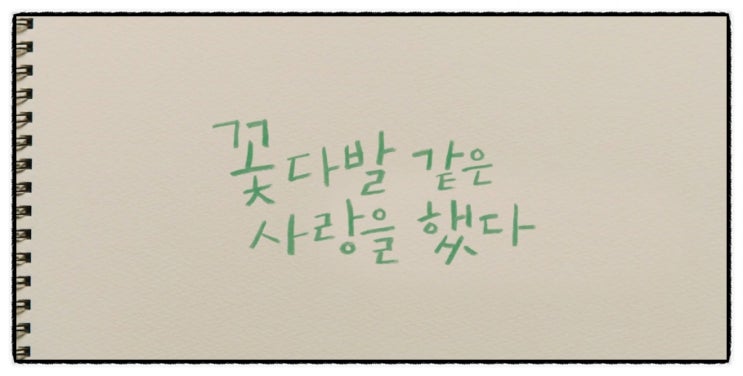 꽃다발 같은
사랑을 했다